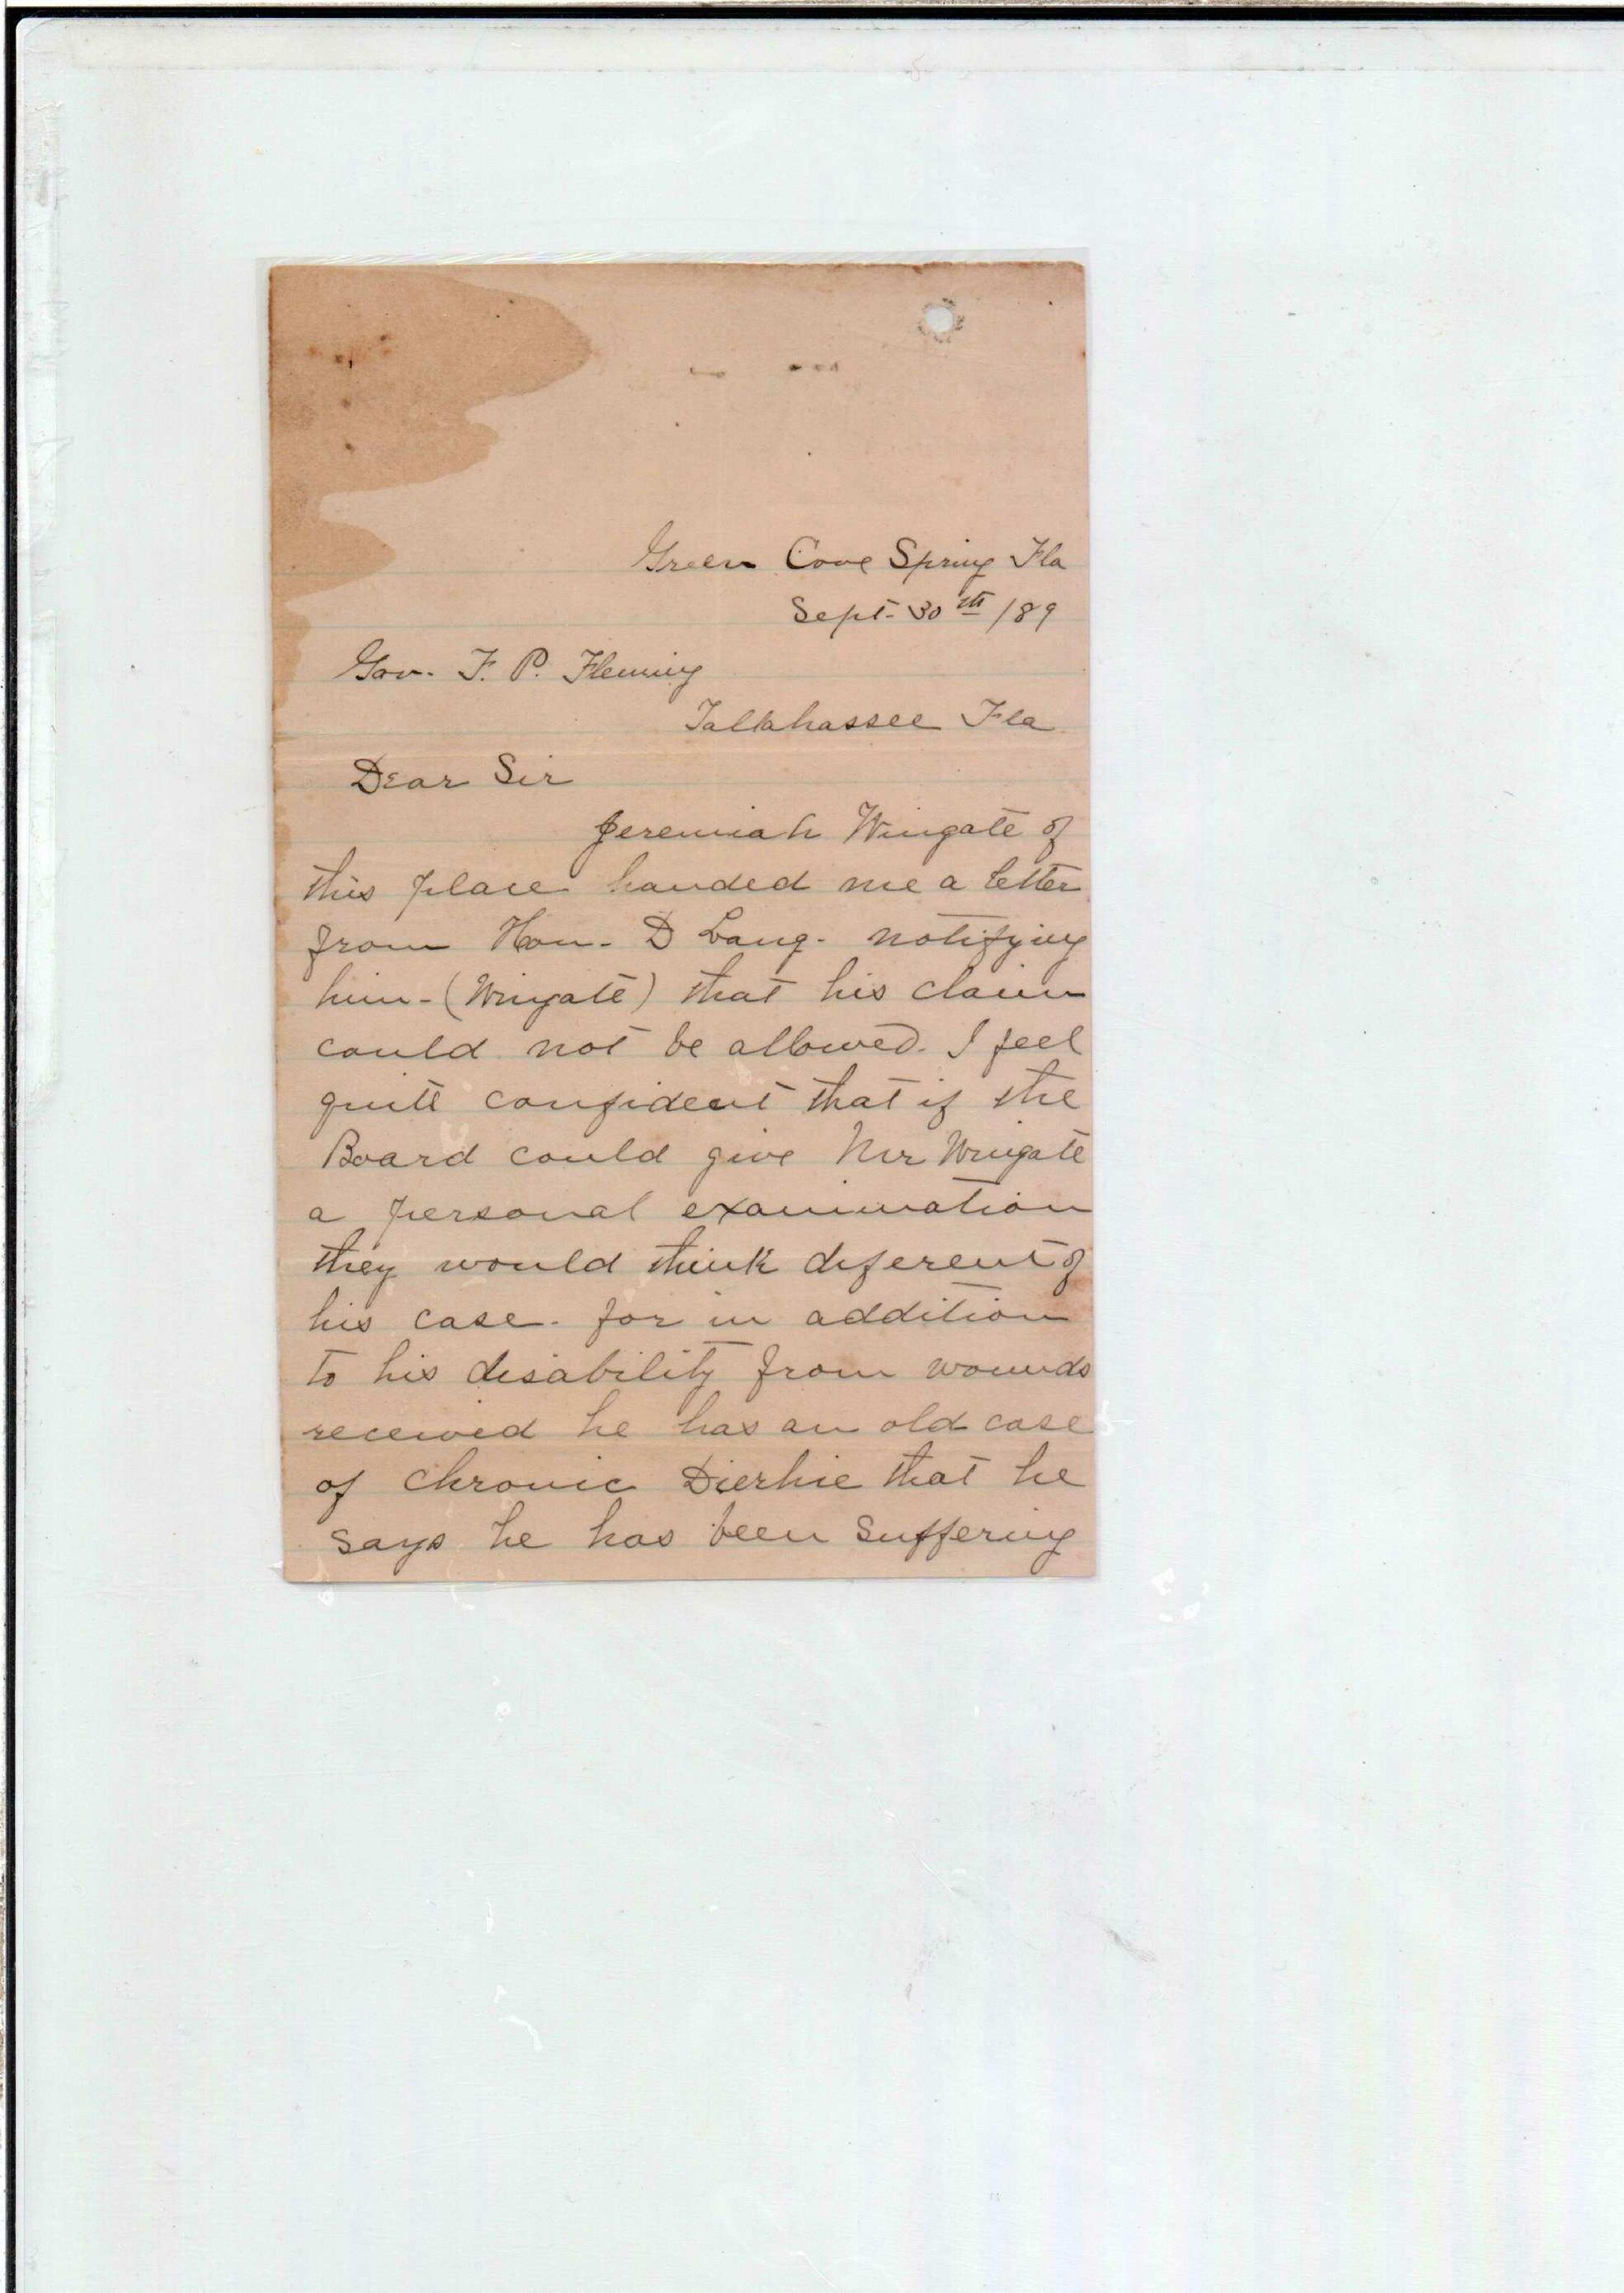 Green Cove Spring Fla
Sept- 30th /89
Gov. F. P. Fleming
Tallahassee Fla
Dear Sir
Jeremiah Wingate of
this place handed me a letter
from Hon- D Lang- notifying
him-(Wingate) that his claim
could not be allowed. I feel
quite confident that if the
Board could give Mr Wingate
a personal examination
they would think diferent of
his case. for in addition
to his disability from wounds
received he has an old case
of Chronic Dierhie that he
says he has been suffering